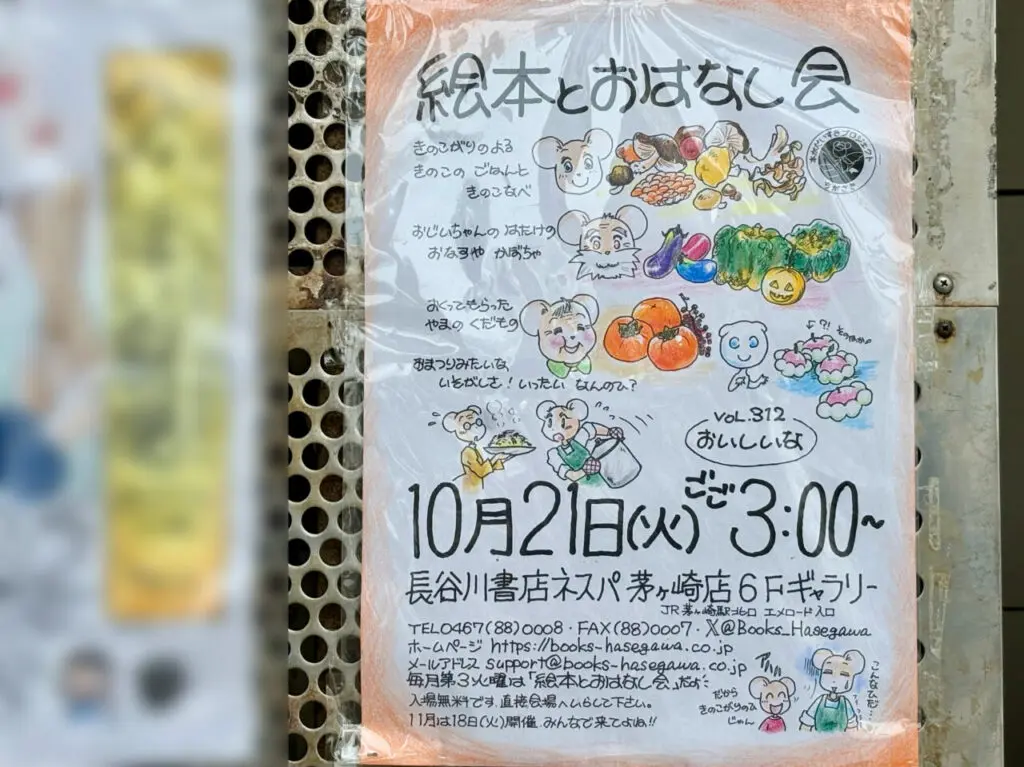 絵本とおはなし会
きのこがりのよる
きのこの ごはんと
きのこなべ
おじいちゃんの はたけの
おなすや かぼちゃ
おくってもらった
やまの くだもの
おまつりみたいな
いそがしさ! いったい なんのひ?
VOL.312
おいしいな
10月21日(火) ごご 3:00~
長谷川書店ネスパ 茅ヶ崎店 6Fギャラリー
JR 茅ヶ崎駅北口 エメロード入口
TEL0467(88)0008・FAX(88)0007・X@Books_Hasegawa
ホームページ https://books-hasegawa.co.jp
メールアドレス support@books-hasegawa.co.jp
毎月第3火曜は「絵本とおはなし会」だよ
入場無料です。直接会場へいらして下さい。
11月は18日(火)開催、みんなで来てよね!!
だから
きのこがりのひ
じゃん
こんなひだ…